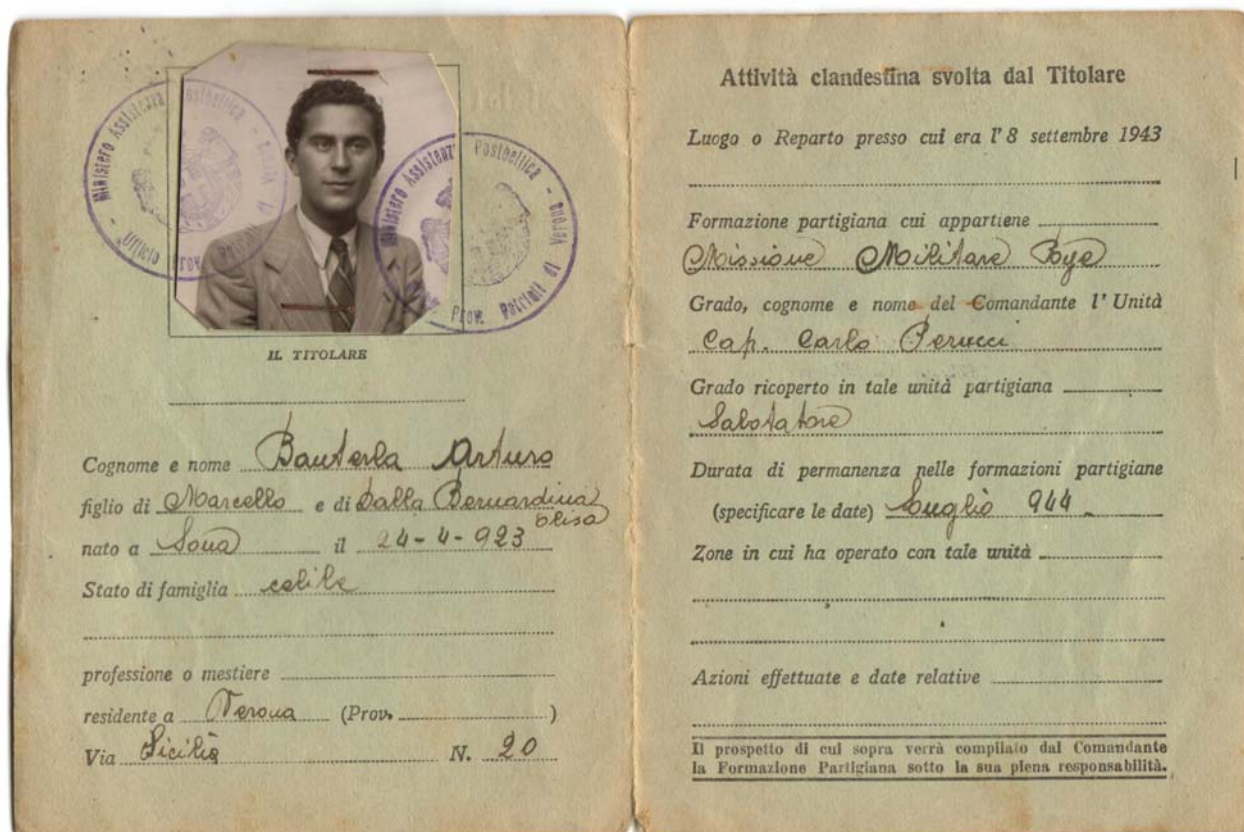 Ministero Assistenza Postbellica - Verona
Ufficio Prov. Patrioti di
Ministero Assistenza Postbellica - Verona
Prov. Patrioti di
IL TITOLARE
Cognome e nome Bauterla Arturo
figlio di Marcello e di Dalla Bernardina
Elisa
nato a Sona il 24-4-923
Stato di famiglia celibe
professione o mestiere
residente a Verona (Prov. )
Via Sicilia N. 20
Attività clandestina svolta dal Titolare
Luogo o Reparto presso cui era l'8 settembre 1943
Formazione partigiana cui appartiene
Missione Militare Rye
Grado, cognome e nome del Comandante l'Unità
Cap. Carlo Perucci
Grado ricoperto in tale unità partigiana
Sabotatore
Durata di permanenza nelle formazioni partigiane
(specificare le date) Luglio 944
Zone in cui ha operato con tale unità
Azioni effettuate e date relative
Il prospetto di cui sopra verrà compilato dal Comandante
la Formazione Partigiana sotto la sua plena responsabilità.